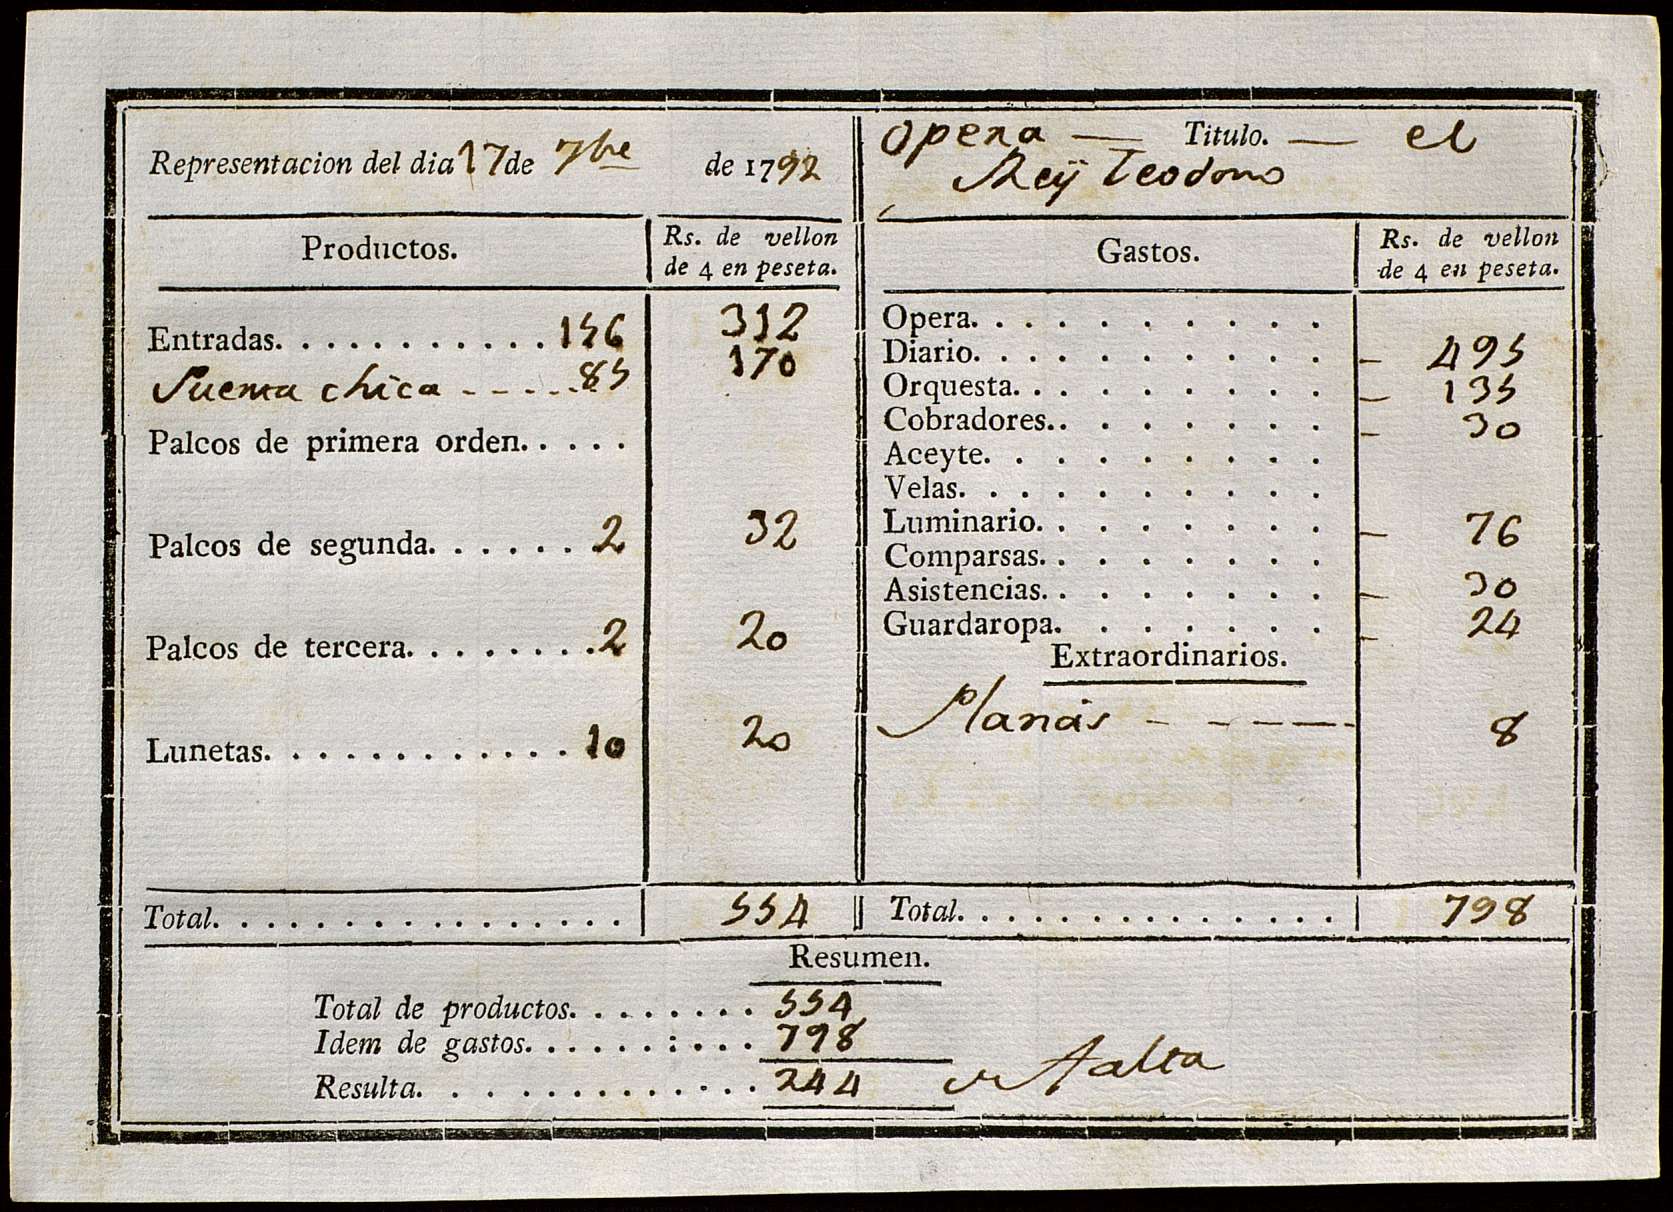 Representacion del dia 17 de 7bre de 1792
Opera — Titulo. — el
Rey Teodoro
Productos.
Rs. de vellon
de 4 en peseta.
Entradas. . . . . . . . . . . 156 312
Puerta chica - - - - - 85 170
Palcos de primera orden. . . . .
Palcos de segunda. . . . . . . 2 32
Palcos de tercera. . . . . . . . 2 20
Lunetas. . . . . . . . . . . . 10 20
Total. . . . . . . . . . . . . . . . 554
Gastos.
Rs. de vellon
de 4 en peseta.
Opera. . . . . . . . . .
Diario. . . . . . . . . . — 495
Orquesta. . . . . . . . . — 135
Cobradores. . . . . . . . — 30
Aceyte. . . . . . . . .
Velas. . . . . . . . . .
Luminario. . . . . . . . — 76
Comparsas. . . . . . . .
Asistencias. . . . . . . . — 30
Guardaropa. . . . . . . — 24
Extraordinarios.
- - - - - 8
Total. . . . . . . . . . . . . . . 798
Resumen.
Total de productos. . . . . . . . 554
Idem de gastos. . . . . . . . . 798
Resulta. . . . . . . . . . . . . 244 falta